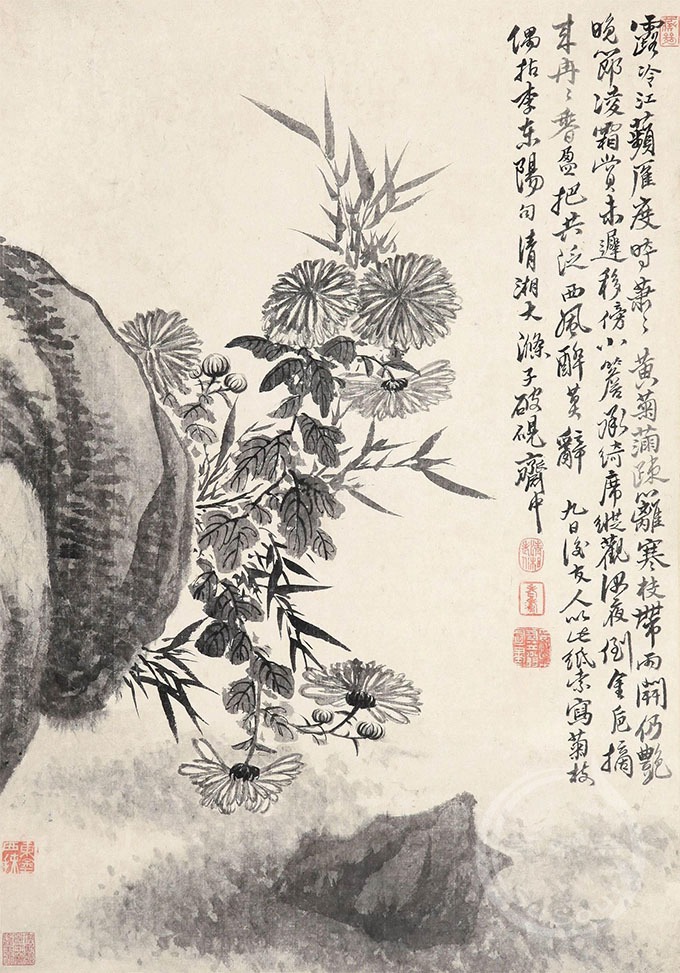 露冷江蘋雁度時蕭〻黃菊滿疎籬寒枝帶雨開仍艷
晚節凌霜賞未遲移傍小簷承綺席縱觀深夜倒金卮摘
來冉〻香盈把共泛西風醉莫辭 九日後友人以此紙索寫菊枝
偶拈李東陽句清湘大滌子破硯齋中